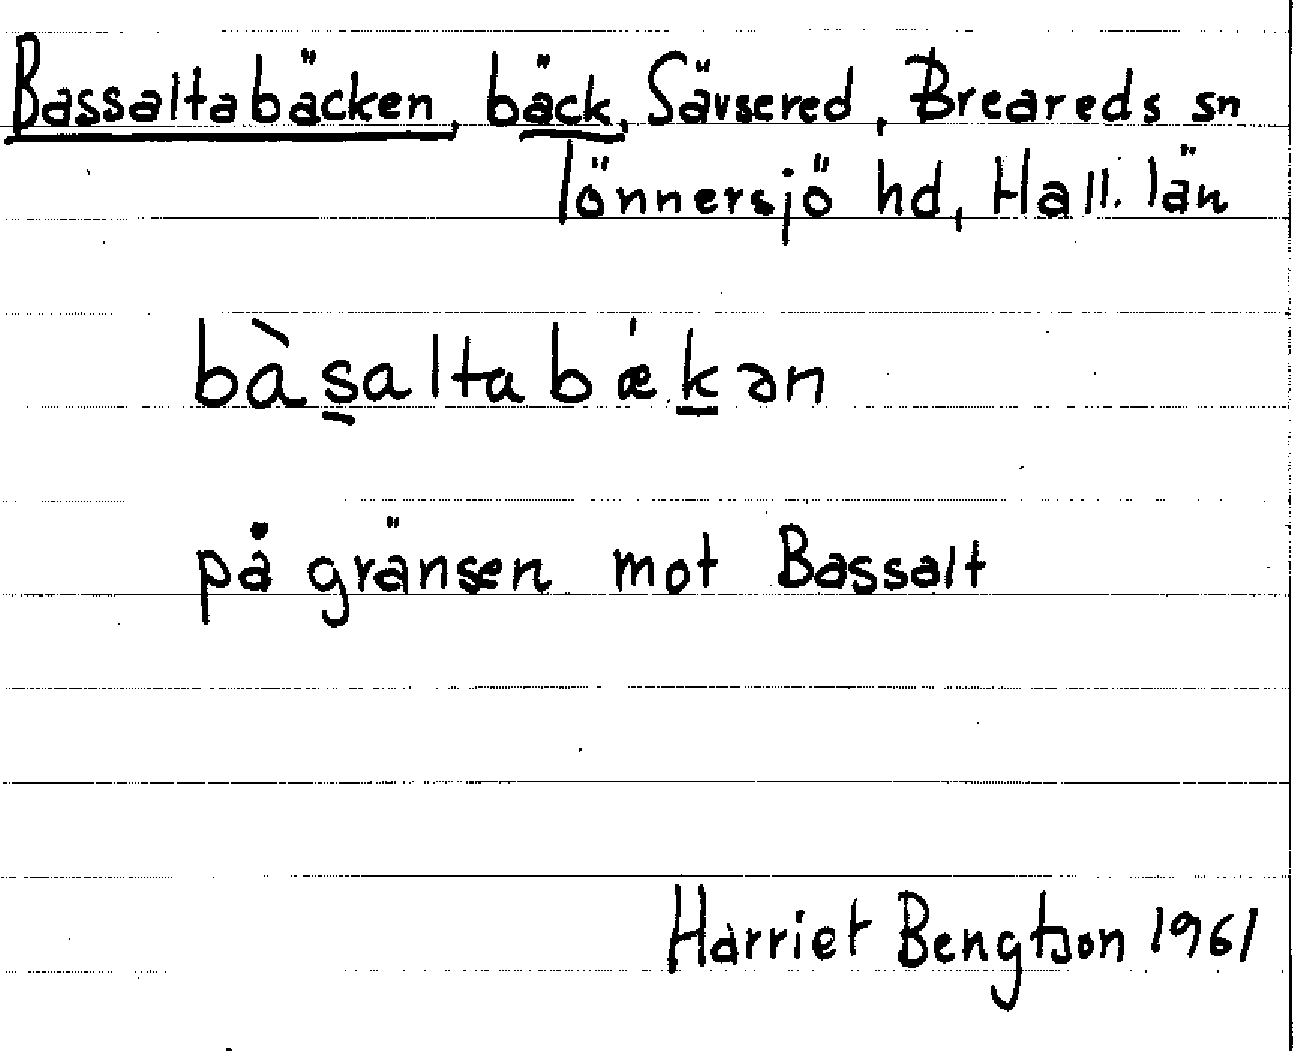 Bassaltabäcken, bäck, Sävsered, Breareds sn
Tönnersjö hd, Hall. län
bàsaltabǽkən
på gränsen mot Bassalt
Harriet Bengtson 1961